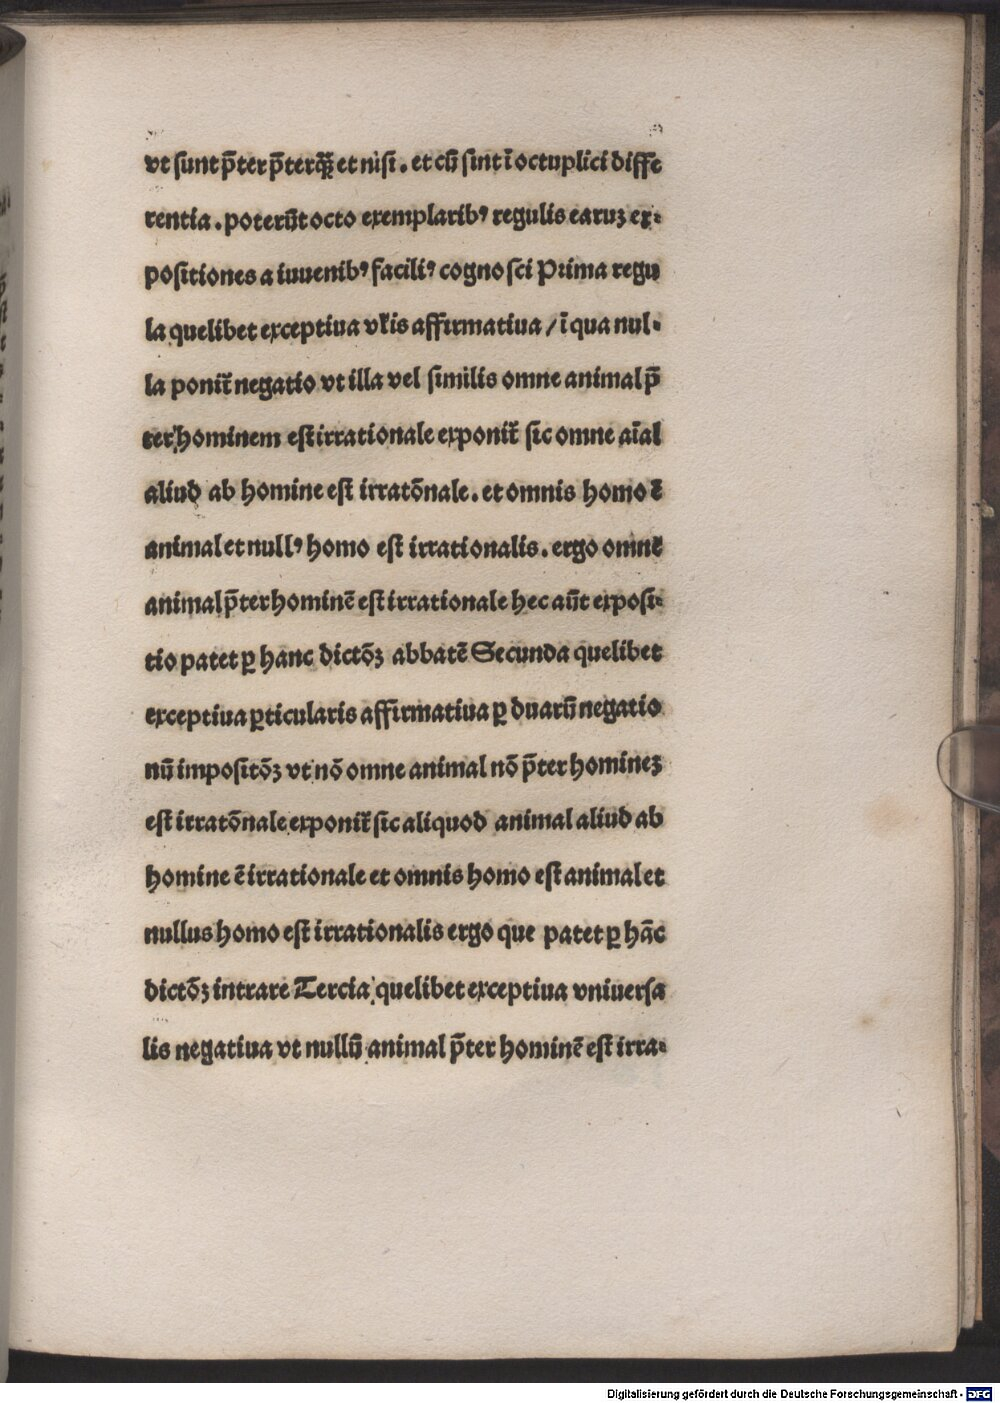 vt sunt p̄ter p̄terq̄ꝫ et nisi . et cū sint ī octuplici diffe
rentia . poterūt octo exemplarib⁹ regulis earuꝫ ex⸗
positiones a iuuenib⁹ facili⁹ cognosci Prima regu
la quelibet exceptiua vl̄is affirmatiua / ī qua nul⸗
la ponit̄ negatio vt illa vel similis omne animal p̄
ter hominem est irrationale exponit̄ sic omne aīal
aliud ab homine est irratōnale . et omnis homo ē
animal et null⁹ homo est irrationalis . ergo omne
animal p̄ter hominē est irrationale hec aūt exposi⸗
tio patet ꝑ hanc dictōꝫ abbatē Secunda quelibet
exceptiua ꝑticularis affirmatiua ꝑ duarū negatio
nū impositōꝫ vt nō omne animal nō p̄ter homineꝫ
est irratōnale exponit̄ sic aliquod animal aliud ab
homine ē irrationale et omnis homo est animal et
nullus homo est irrationalis ergo que patet ꝑ hāc
dictōꝫ intrare Tercia quelibet exceptiua vniuersa
lis negatiua vt nullū animal p̄ter hominē est irra⸗
Digitalisierung gefördert durch die Deutsche Forschungsgemeinschaft - DFG